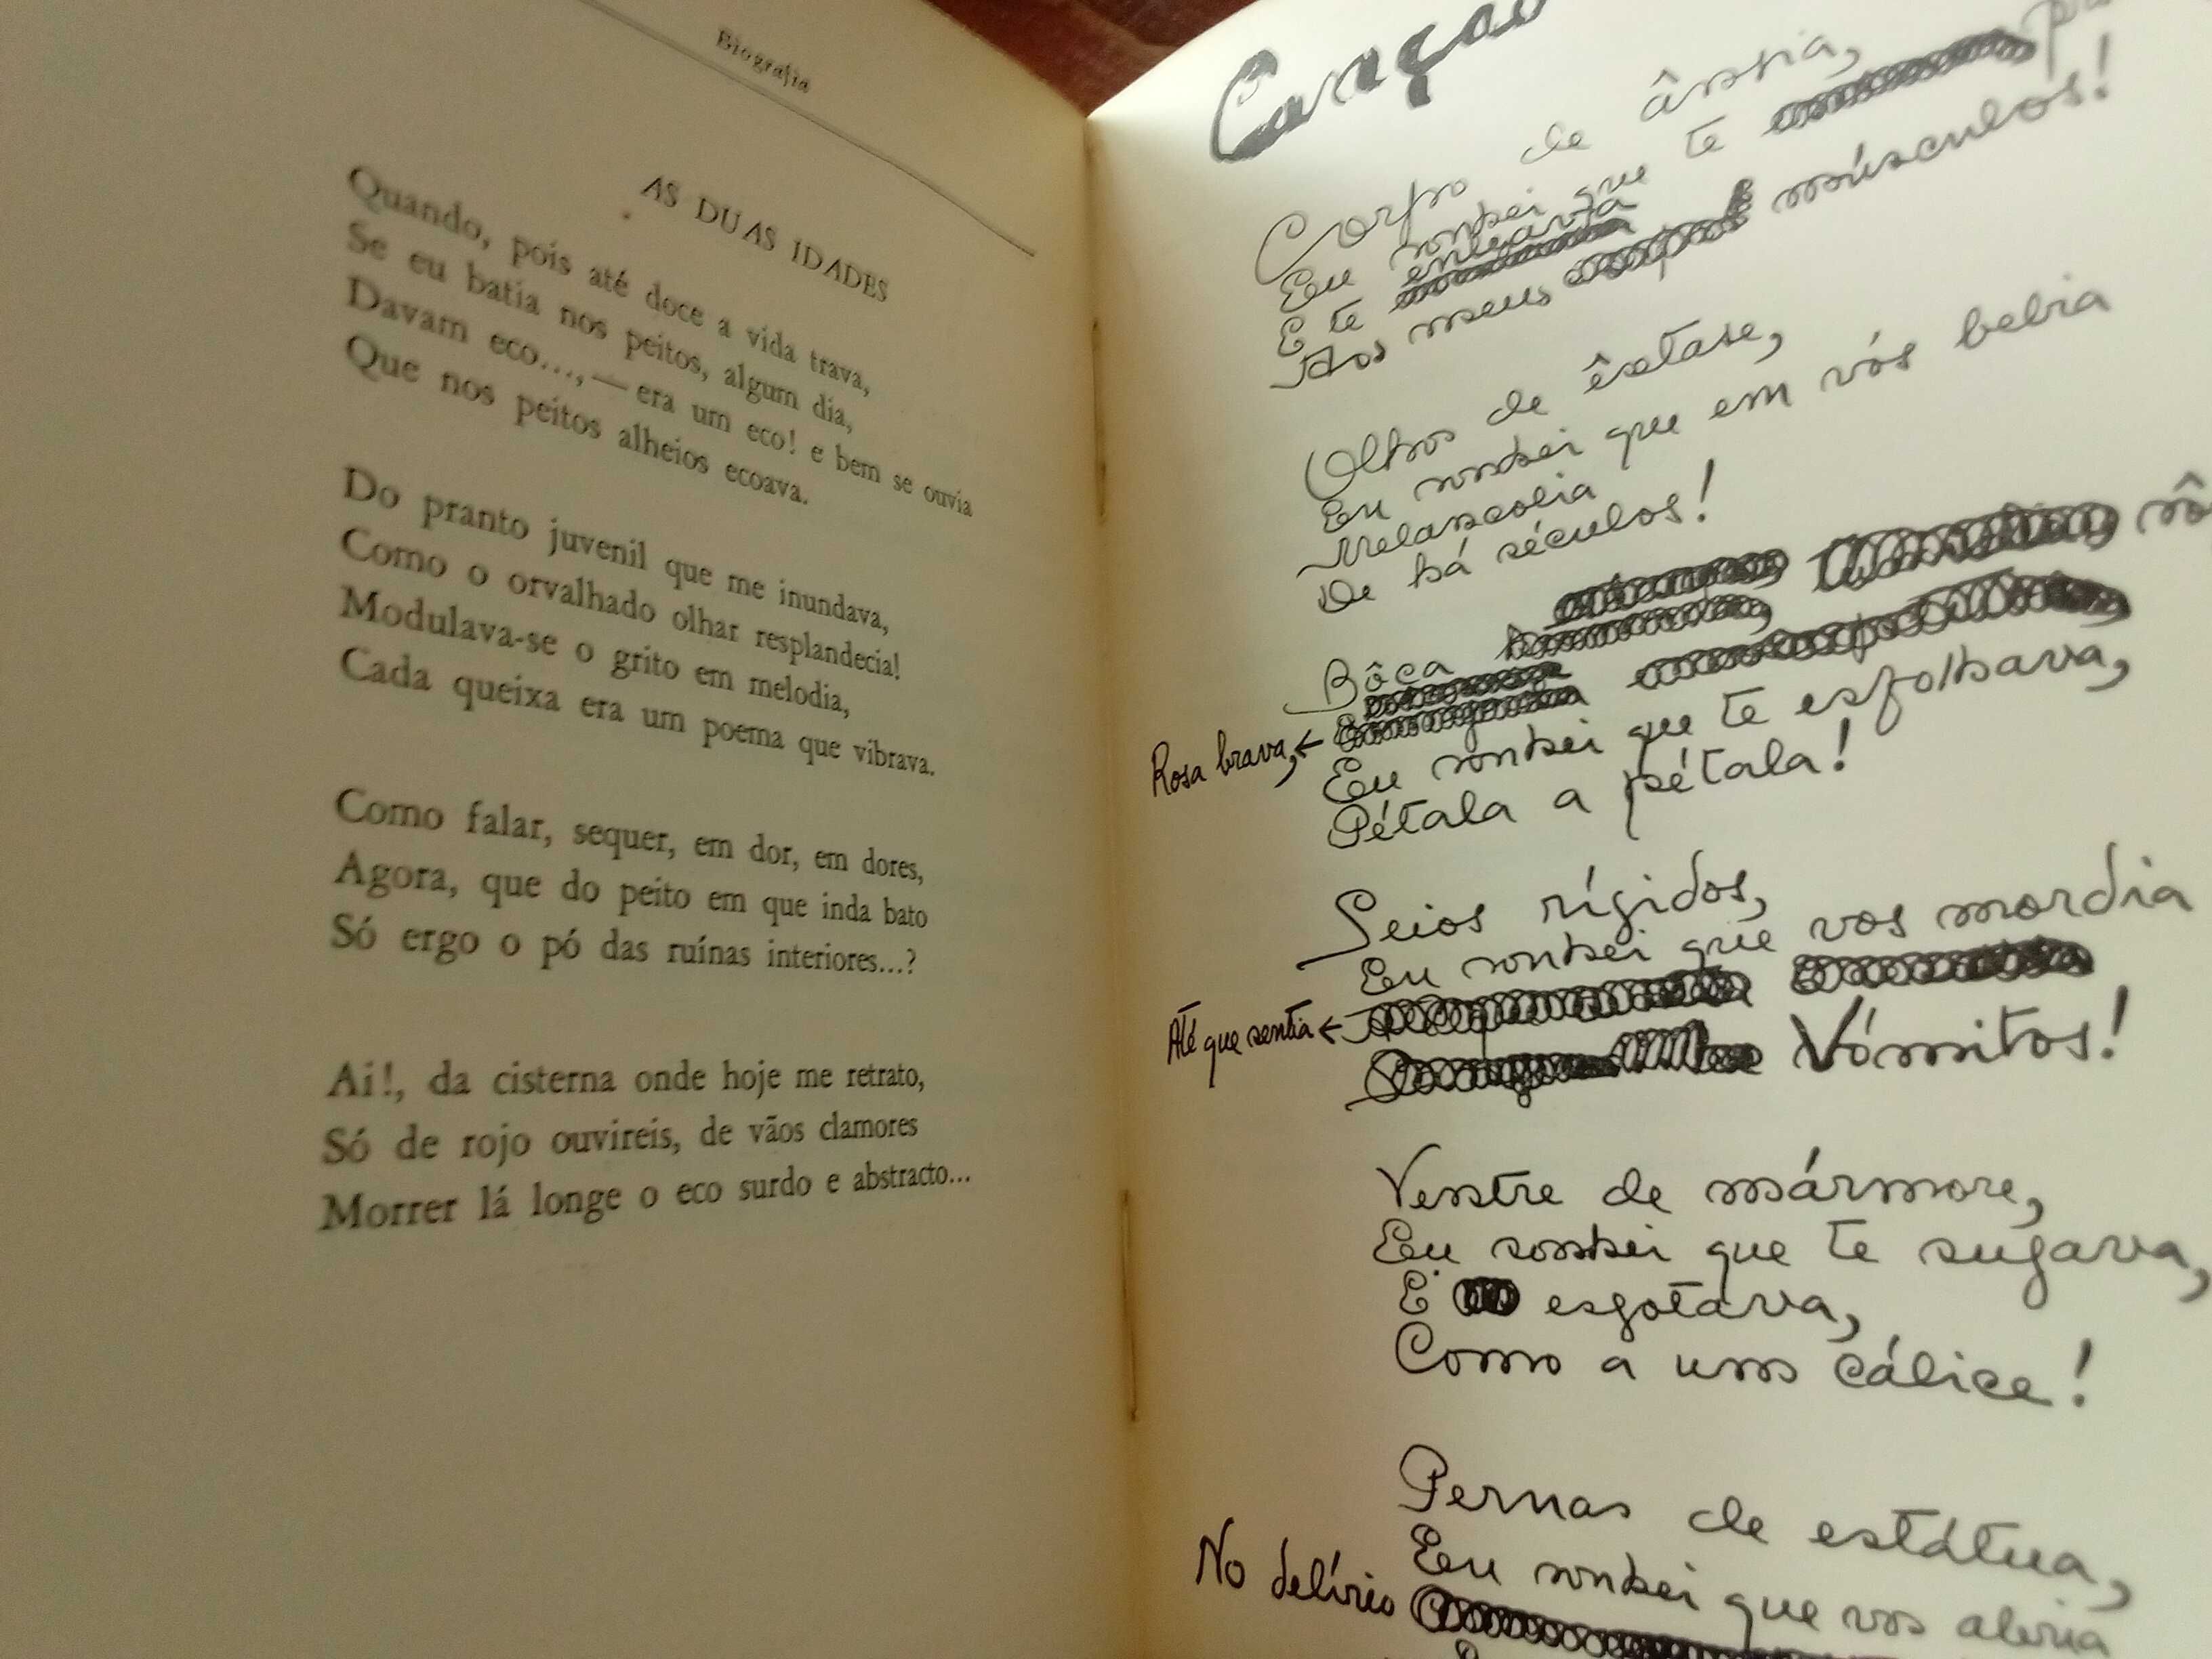 Biografia
AS DUAS IDADES
Quando, pois até doce a vida trava,
Se eu batia nos peitos, algum dia,
Davam eco..., — era um eco! e bem se ouvia
Que nos peitos alheios ecoava.
Do pranto juvenil que me inundava,
Como o orvalhado olhar resplandecia!
Modulava-se o grito em melodia,
Cada queixa era um poema que vibrava.
Como falar, sequer, em dor, em dores,
Agora, que do peito em que inda bato
Só ergo o pó das ruínas interiores...?
Ai!, da cisterna onde hoje me retrato,
Só de rojo ouvireis, de vãos clamores
Morrer lá longe o eco surdo e abstracto...
Canção
Corpo de ânsia,
Eu sonhei que te
E te enleava
Aos meus músculos!
Olhos de êxtase,
Eu sonhei que em vós bebia
Melancolia
De há séculos!
Bôca
Rosa brava,
Eu sonhei que te esfolhava,
Pétala a pétala!
Seios rígidos,
Eu sonhei que vos mordia
Até que sentia
Vómitos!
Ventre de mármore,
Eu sonhei que te sugava,
E esgotava,
Como a um cálice!
Pernas de estátua,
Eu sonhei que vos abria
No delírio